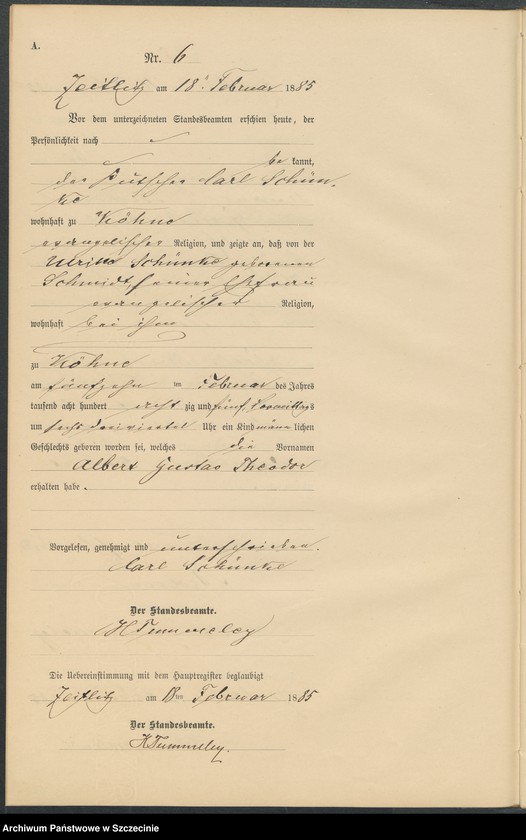 A.
Nr. 6
Zeitlitz am 18ⁿ Februar 1885
Vor dem unterzeichneten Standesbeamten erschien heute, der
Persönlichkeit nach
be kannt,
der Kutscher Carl Schün-
ke
wohnhaft zu Köhne
evangelischer Religion, und zeigte an, daß von der
Ulrike Schünke geborenen
Schmidt seiner Ehefrau
evangelischer Religion,
wohnhaft bei ihm
zu Köhne
am fünfzehn ten Februar des Jahres
tausend acht hundert acht zig und fünf Vormittags
um sechs dreiviertel Uhr ein Kind männ lichen
Geschlechts geboren worden sei, welches die Vornamen
Albert Gustav Theodor
erhalten habe .
Vorgelesen, genehmigt und unterschrieben.
Carl Schünke
Der Standesbeamte.
HTummeley
Die Uebereinstimmung mit dem Hauptregister beglaubigt
Zeitlitz am 18ten Februar 1885
Der Standesbeamte.
HTummeley.
Archiwum Państwowe w Szczecinie